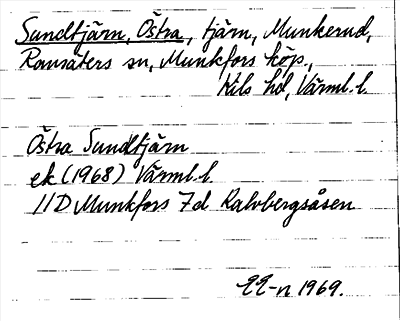 Sundtjärn, Östra, tjärn, Munkerud,
Ransäters sn, Munkfors köp.,
Kils hd, Värml. l.
Östra Sundtjärn
ek (1968) Värml. l.
11D Munkfors 7d Kalvbergsåsen
EE-n 1969.